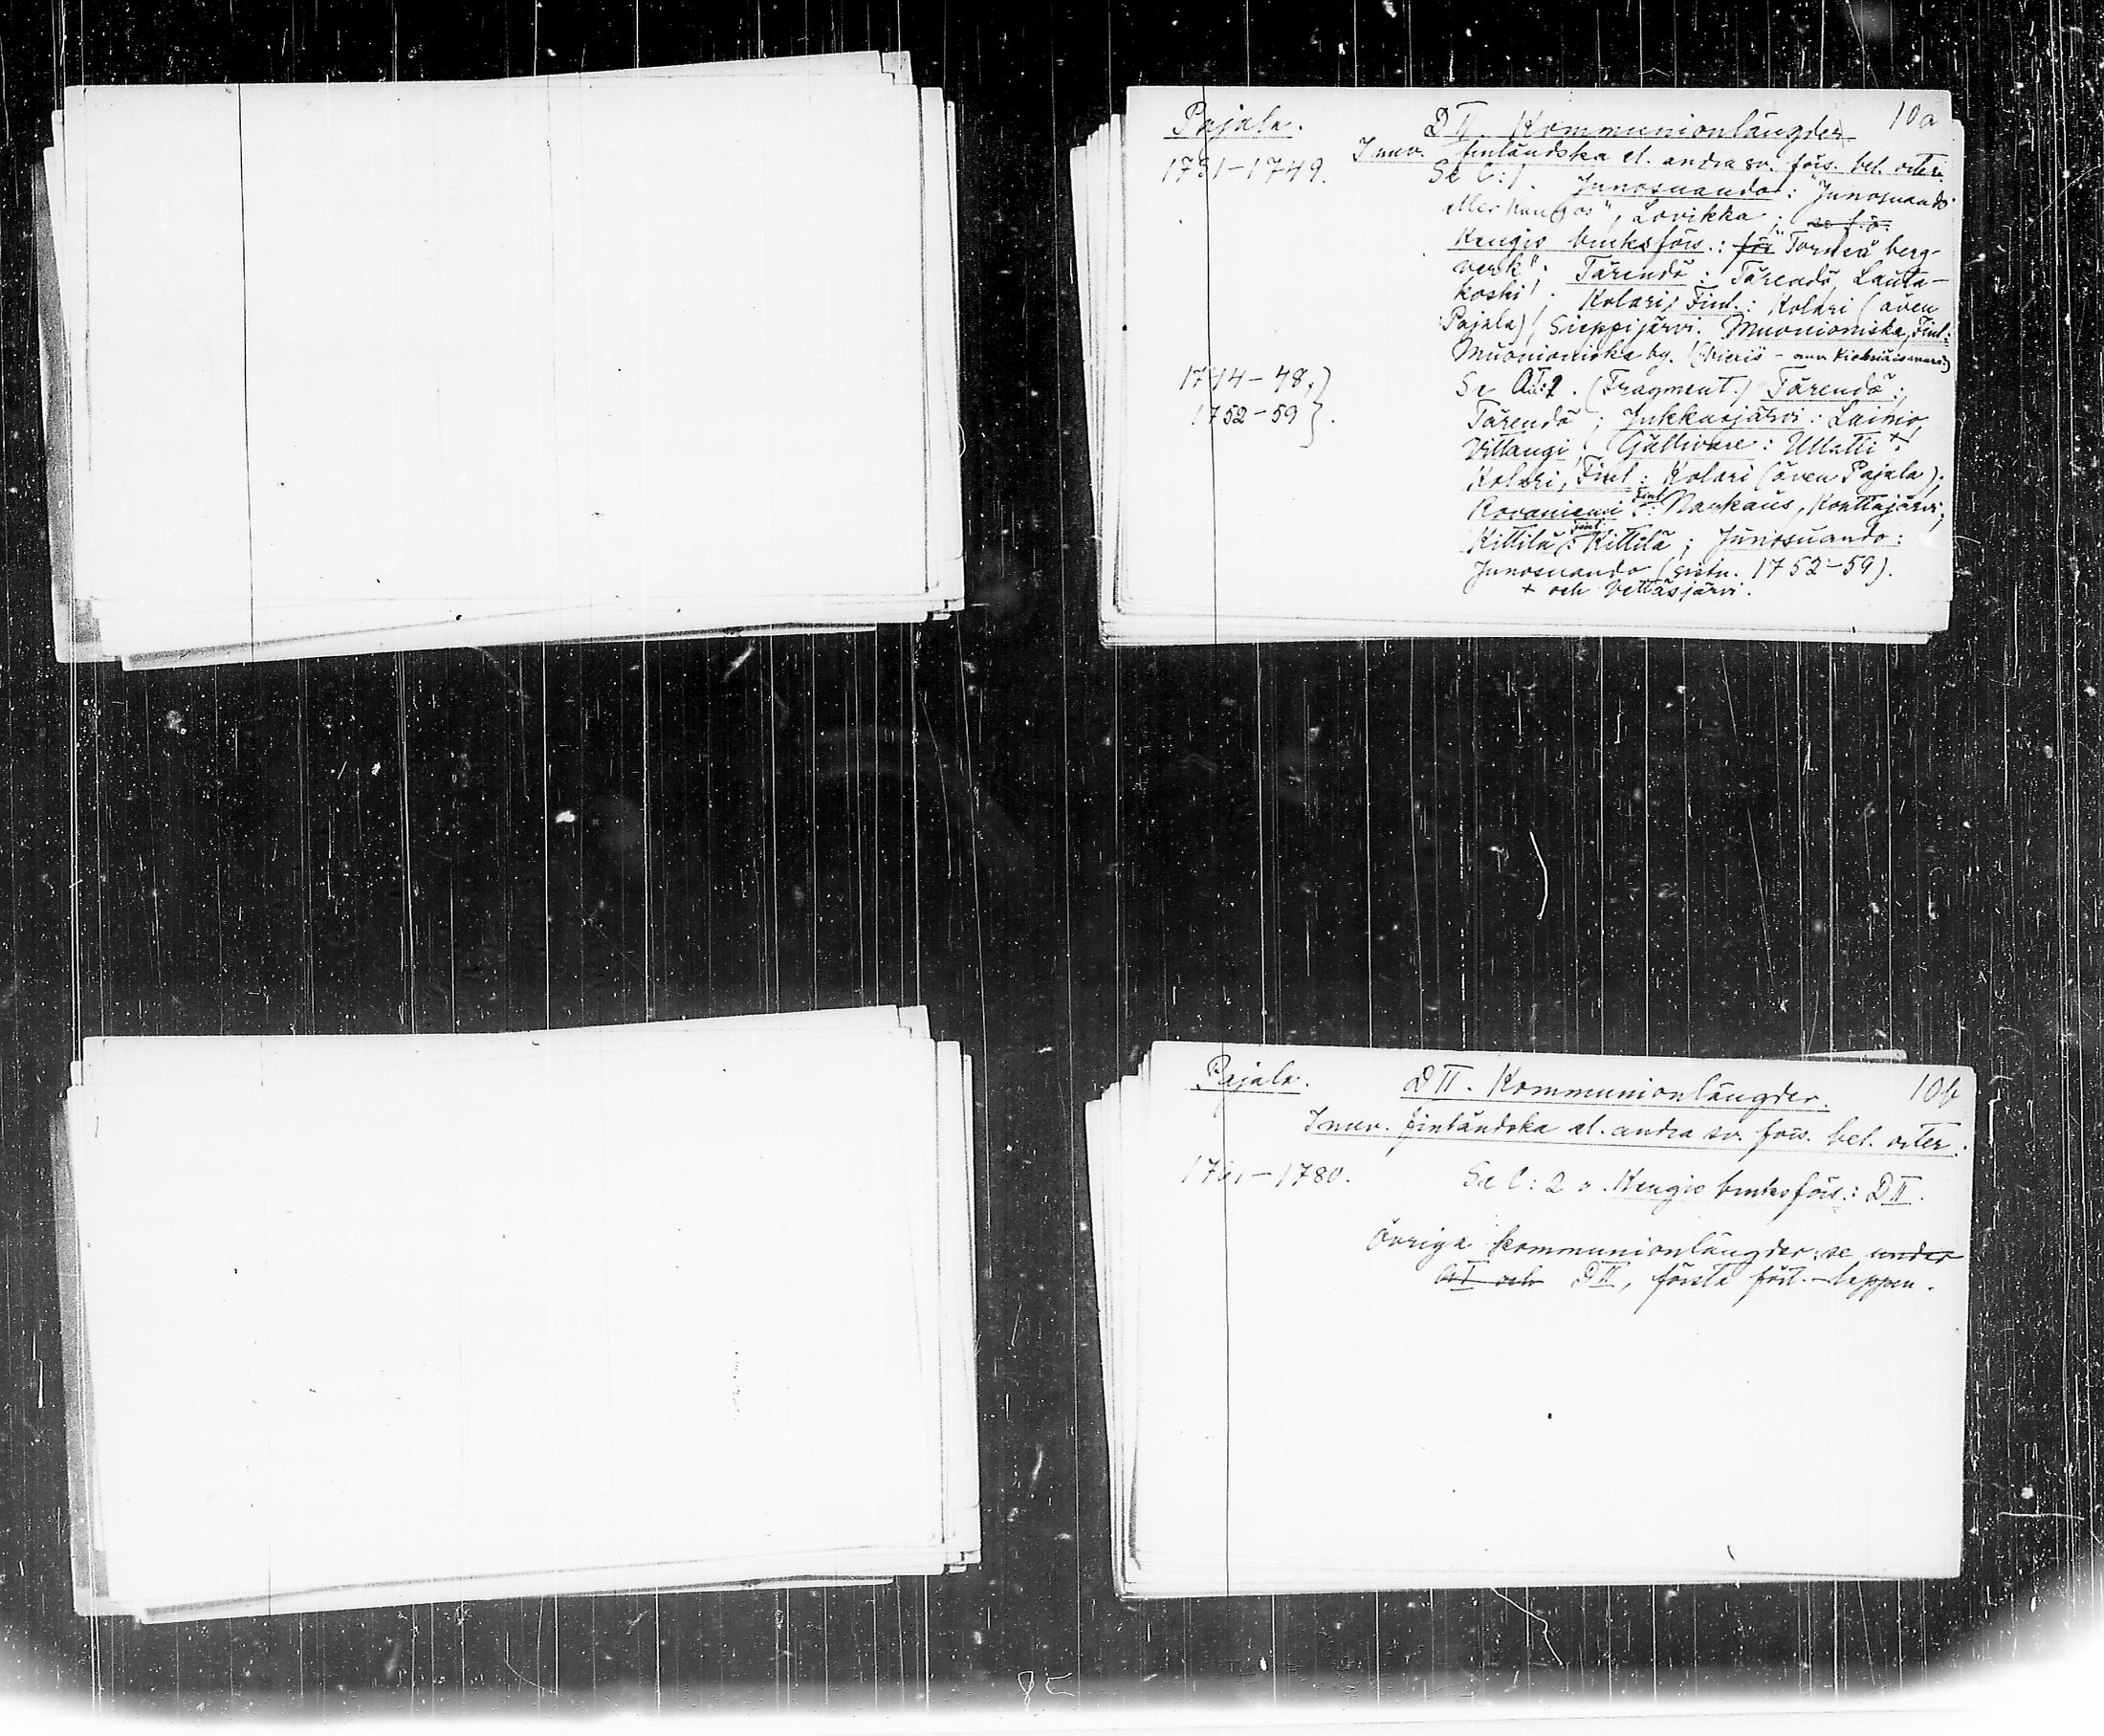 Pajala. DII. Kommunionlängder 10a
Innev. finländska el. andra sv. förs. bel. orter.
1731-1749. Se C:1. Junosuando: "Junosuando
eller Kangos", Lovikka; se f.ö.
Kengis bruksförs.: för "Torneå berg-
verk". Tärendö: Tärendö, Lauta-
koski. Kolari, Finl.: Kolari (även
Pajala), Sieppijärvi. Muonioniska, Finl.:
Muonioniska by.
1744-48,}
Se AI:1. (Fragment.) Tärendö:
1752-59}.
Tärendö; Jukkasjärvi: Lainio,
Vittangi; Gällivare: Ullatti +;
Kolari, Finl.: Kolari (även Pajala);
Rovaniemi Finl.: Narkaus, Konttajärvi;
Kittilä Finl.: Kittilä; Junosuando:
Junosuando (sistn. 1752-59).
+ och Vettasjärvi.
Pajala. DII. Kommunionlängder. 10b
Innev. finländska el. andra sv. förs. bel. orter.
1761-1780. Se C:2 o. Kengis bruksförs.: DII.
Övriga kommunionlängder: se under
AI och DII, första fört.-lappen.
85